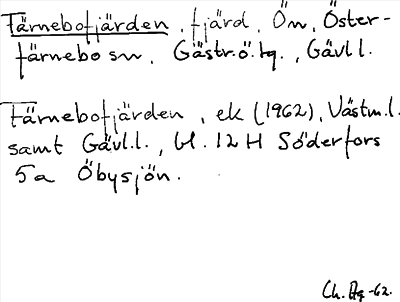 Färnebofjärden, fjärd, Ön, Öster-
färnebo sn, Gästr.ö.tg., Gävl.l.
Färnebofjärden, ek (1962), Västm.l.
samt Gävl.l., bl. 12 H Söderfors
5a Öbysjön.
Ch. Hg -62.